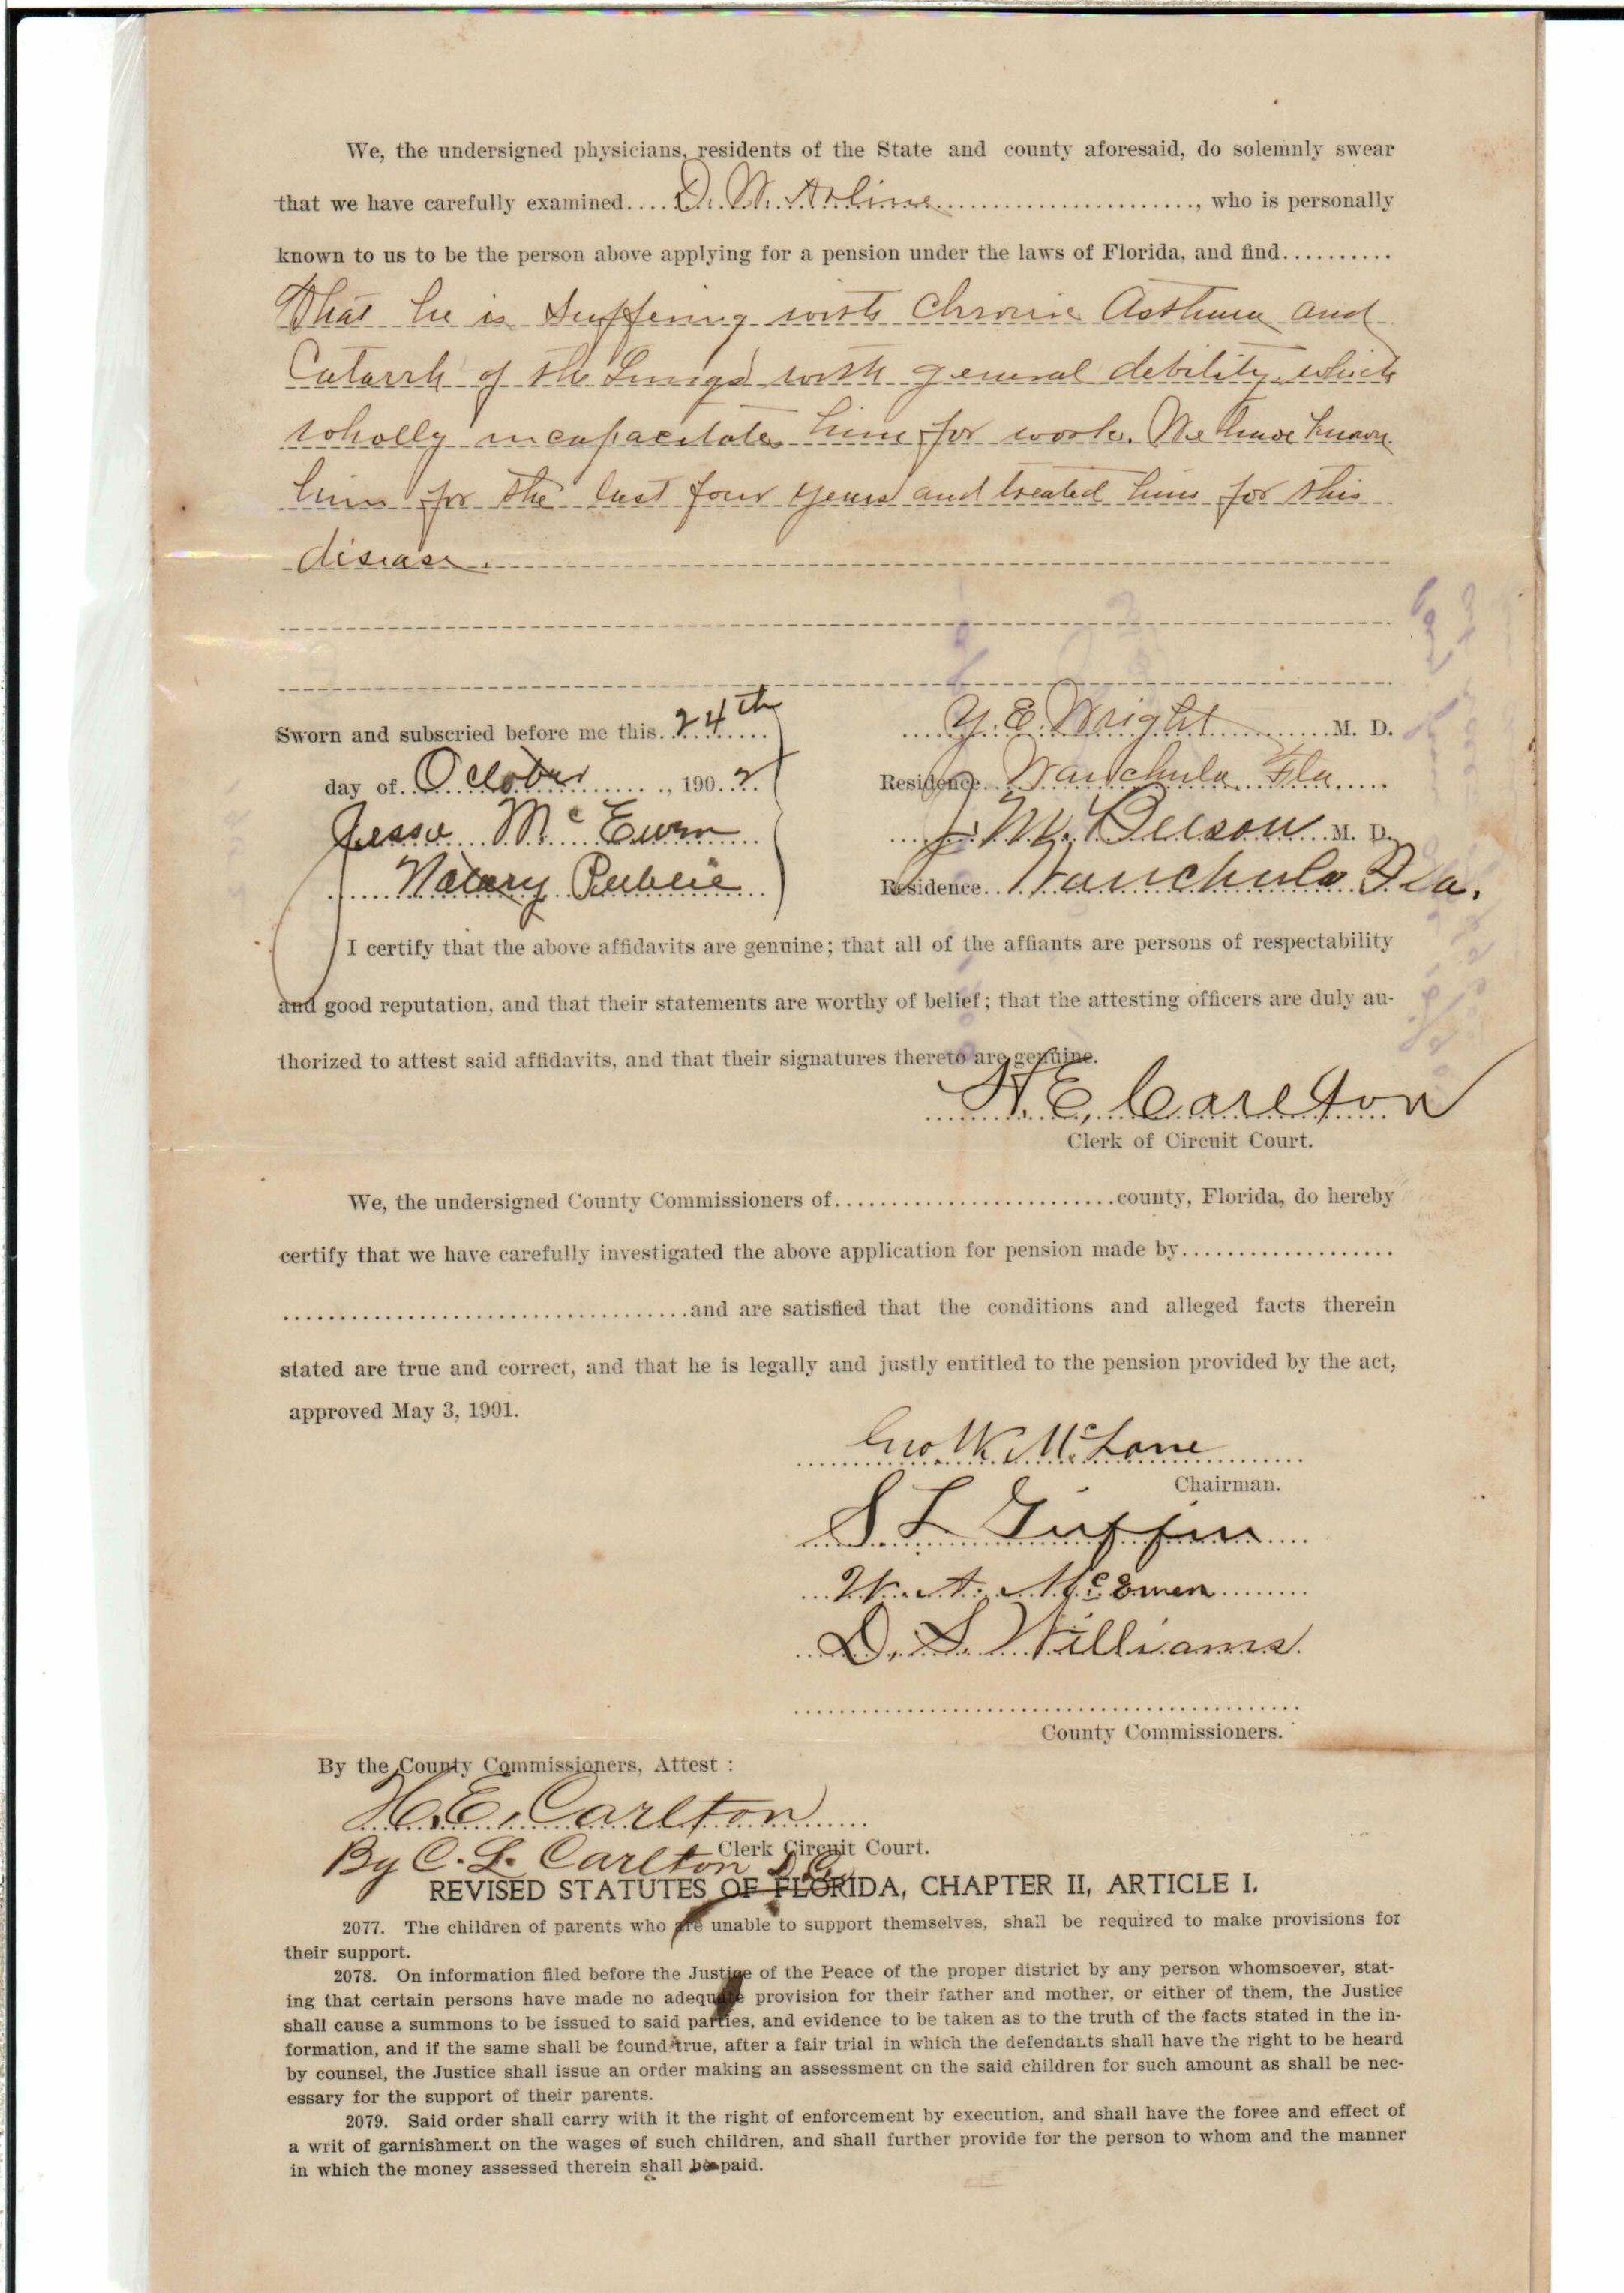 We, the undersigned physicians, residents of the State and county aforesaid, do solemnly swear
that we have carefully examined....D. W. Arline..............................., who is personally
known to us to be the person above applying for a pension under the laws of Florida, and find..........
That he is Suffering with Chronic Asthma and
Catarrh of the Lungs with general debility which
wholly incapacitates him for work. We have known
him for the last four years and treated him for this
disease.
Sworn and subscried before me this 24th
day of October, 1902
Jesse McEwen
Notary Public
Y. E. Wright M. D.
Residence Wauchula Fla
J. M. M. D.
Residence Wauchula Fla.
I certify that the above affidavits are genuine; that all of the affiants are persons of respectability
and good reputation, and that their statements are worthy of belief; that the attesting officers are duly au-
thorized to attest said affidavits, and that their signatures thereto are genuine.
H. E. Carlton
Clerk of Circuit Court.
We, the undersigned County Commissioners of..........................county, Florida, do hereby
certify that we have carefully investigated the above application for pension made by...................
....................................and are satisfied that the conditions and alleged facts therein
stated are true and correct, and that he is legally and justly entitled to the pension provided by the act,
approved May 3, 1901.
Geo W. McLane
Chairman.
S L Griffin
W. A. McEwen
D. S. Williams
County Commissioners.
By the County Commissioners, Attest :
H. E. Carlton
Clerk Circuit Court.
By C. L. Carlton D C
REVISED STATUTES OF FLORIDA, CHAPTER II, ARTICLE I.
2077. The children of parents who are unable to support themselves, shall be required to make provisions for
their support.
2078. On information filed before the Justice of the Peace of the proper district by any person whomsoever, stat-
ing that certain persons have made no adequate provision for their father and mother, or either of them, the Justice
shall cause a summons to be issued to said parties, and evidence to be taken as to the truth of the facts stated in the in-
formation, and if the same shall be found true, after a fair trial in which the defendants shall have the right to be heard
by counsel, the Justice shall issue an order making an assessment on the said children for such amount as shall be nec-
essary for the support of their parents.
2079. Said order shall carry with it the right of enforcement by execution, and shall have the force and effect of
a writ of garnishment on the wages of such children, and shall further provide for the person to whom and the manner
in which the money assessed therein shall be paid.